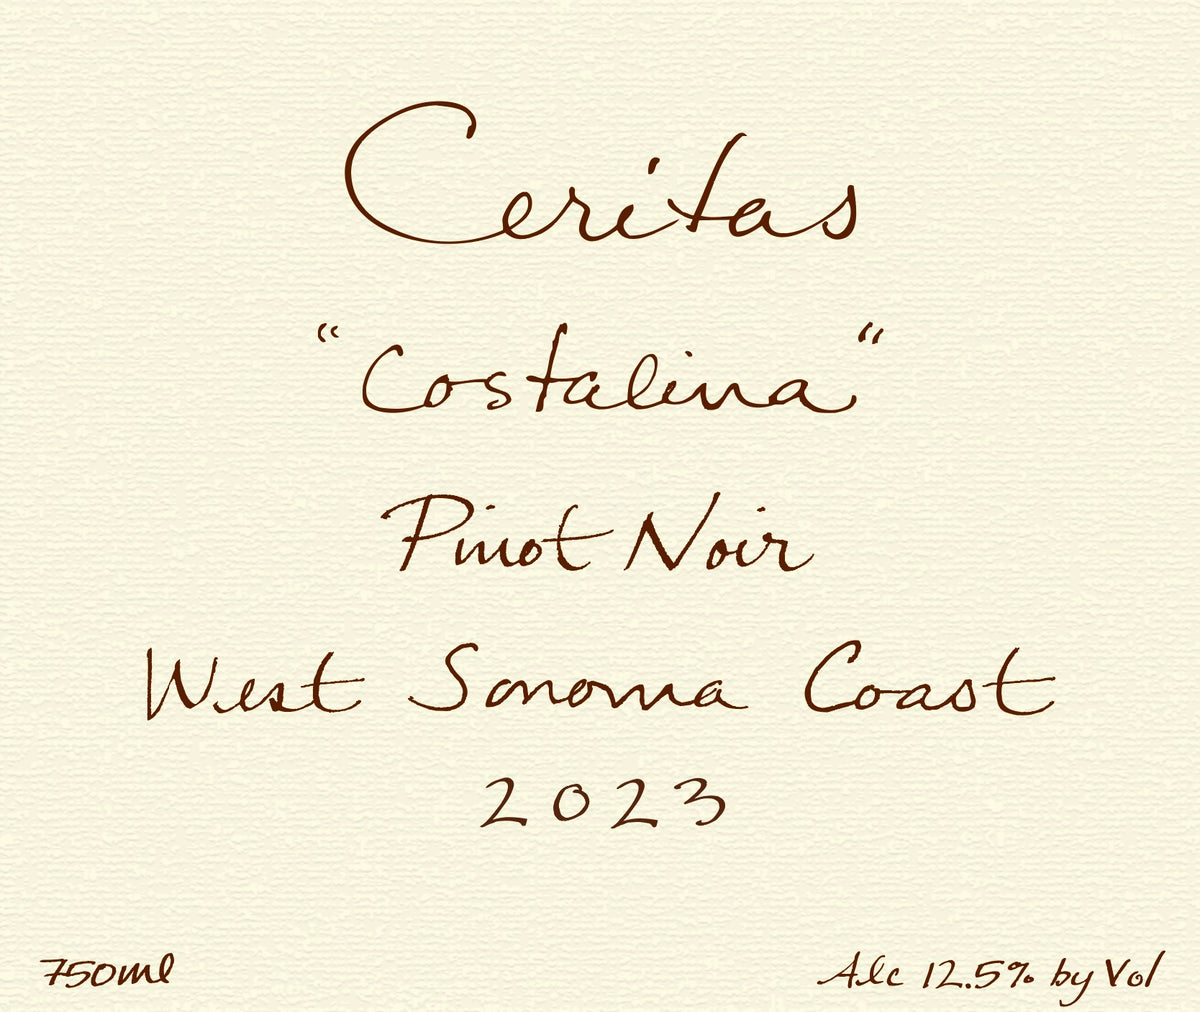 Ceritas
“Costalina”
Pinot Noir
West Sonoma Coast
2023
750ml
Alc 12.5% by Vol